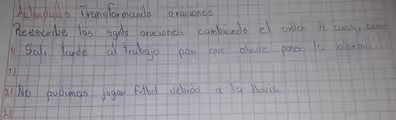 Actividad Transformando oraciones
Reescribe las sgnts oraciones cambiando el orden
1) Sali tarde al trabajo por que olvide poner la alarma
1)
2) No pudimos jugar futbol debido a la lluvia
2)